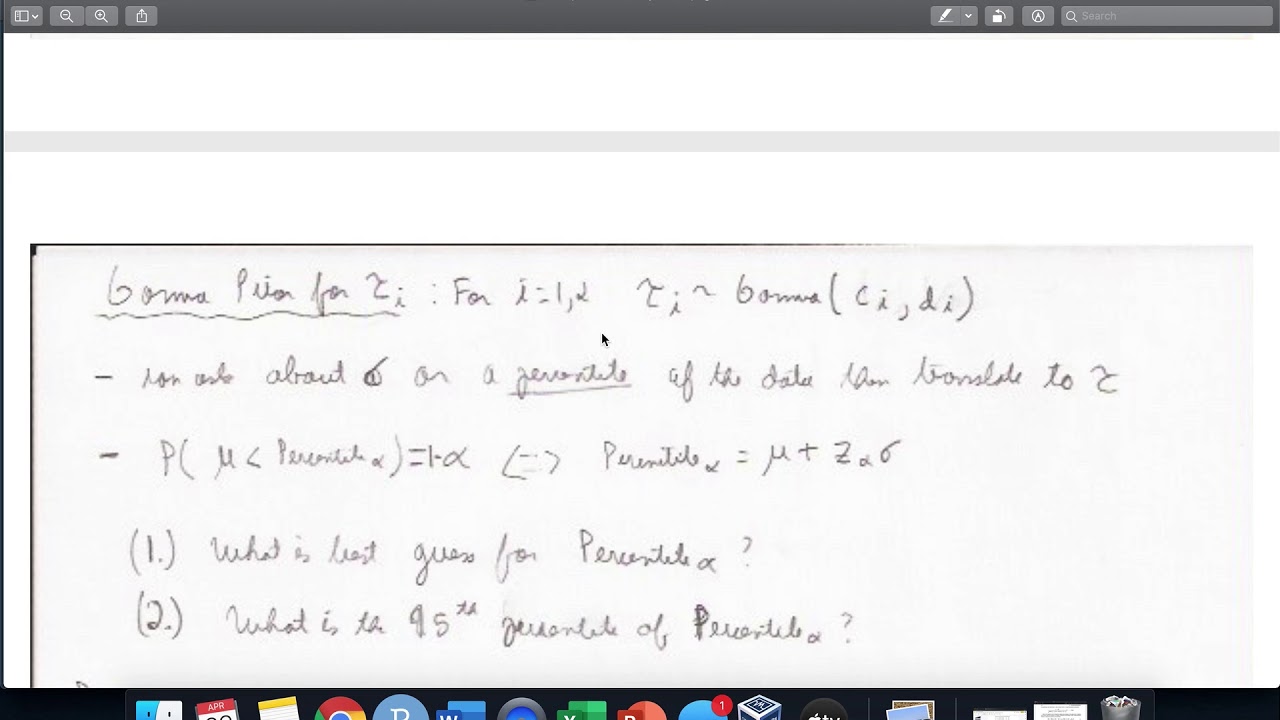 Search
Gamma Prior for τi : For i=1,2 τi ~ Gamma( ci, di)
- can ask about σ or a percentile of the data then translate to τ
- P( μ < Percentile α)=1-α <=> Percentile α = μ + Zασ
(1.) What is best guess for Percentile α ?
(2.) What is the 95th percentile of Percentile α ?
APR
1
W
X
P
tv